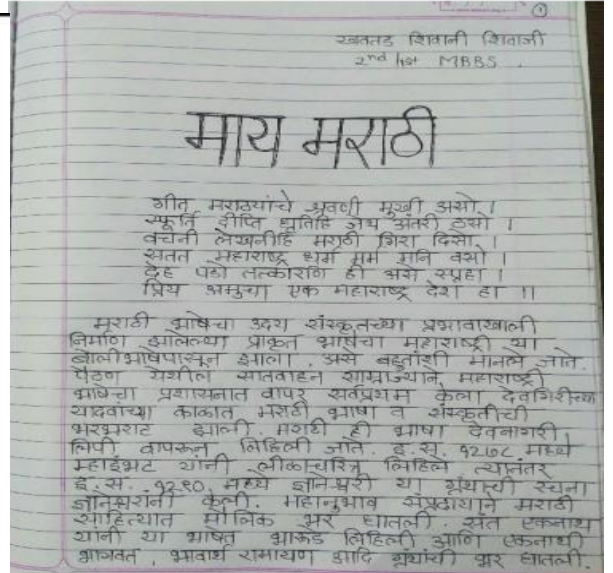 ①
खवतड शिवानी शिवाजी
2nd 1st MBBS.
माय मराठी
गीत मराठयांचे श्रवणी मुखी असो ।
स्फूर्ति दीप्ति धृतिहि जेथ अंतरी ठसो ।
वचनी लेखनीहि मराठी गिरा दिसो ।
सतत महाराष्ट्र धर्म मर्म मनि वसो ।
देह पडो तत्कारणि ही असे स्पृहा ।
प्रिय अमुचा एक महाराष्ट्र देश हा ॥
मराठी भाषेचा उदय संस्कृतच्या प्रभावाखाली
निर्माण झालेल्या प्राकृत भाषेचा महाराष्ट्री या
बोलीभाषेपासून झाला. असे बहुतांशी मानले जाते.
पैठण येथील सातवाहन साम्राज्याने महाराष्ट्री
भाषेचा प्रशासनात वापर सर्वप्रथम केला देवगिरीच्या
यादवांच्या काळात मराठी भाषा व संस्कृतीची
भरभराट झाली. मराठी ही भाषा देवनागरी
लिपी वापरून लिहिली जाते. इ.स. १२७८ मध्ये
म्हाइंभट यांनी लीळाचरित्र लिहिले त्यानंतर
इ.स. १२९० मध्ये ज्ञानेश्वरी या ग्रंथाची रचना
ज्ञानेश्वरांनी केली. महानुभाव संप्रदायाने मराठी
साहित्यात मौलिक भर घातली. संत एकनाथ
यांनी या भाषेत भारूड लिहिली आणि एकनाथी
भागवत, भावार्थ रामायण आदि ग्रंथांची भर घातली.